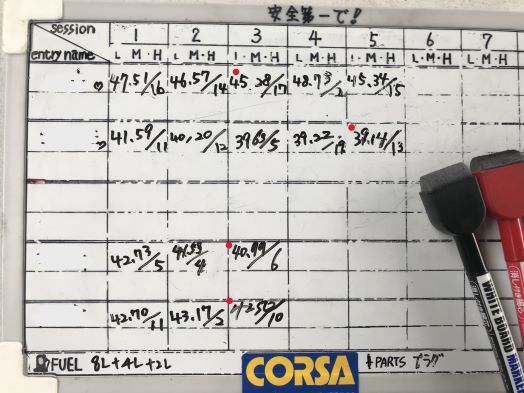 安全第一で!
session 1 2 3 4 5 6 7
entry name L M・H L M・H L M・H L M・H L M・H L M・H L M・H
47.51/16 46.57/14 45.28/17 48.73/2 45.34/15
41.59/11 40.20/12 39.63/5 39.22/19 39.14/13
42.73/5 41.53/4 40.99/6
42.70/11 43.17/2 /10
FUEL 8L+4L+2L CORSA PARTS プラグ
WHITE BOARD MARKER